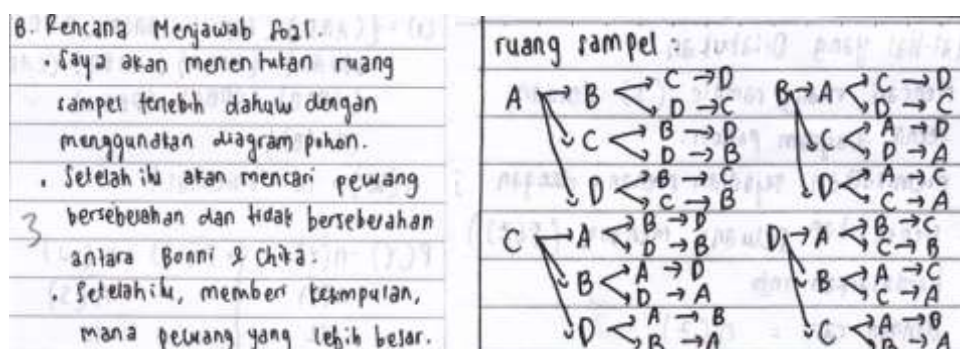 B. Rencana Menjawab Soal.
• Saya akan menentukan ruang
sampel terlebih dahulu dengan
menggunakan diagram pohon.
• Setelah itu akan mencari peluang
bersebelahan dan tidak bersebelahan
3
antara Bonni & Chika.
• Setelah itu, memberi kesimpulan,
mana peluang yang lebih besar.
ruang sampel :
A → B < C → D
D → C
→ C < B → D
D → B
→ D < B → C
C → B
B → A < C → D
D → C
→ C < A → D
D → A
→ D < A → C
C → A
C → A < B → D
D → B
→ B < A → D
D → A
→ D < A → B
B → A
D → A < B → C
C → B
→ B < A → C
C → A
→ C < A → B
B → A